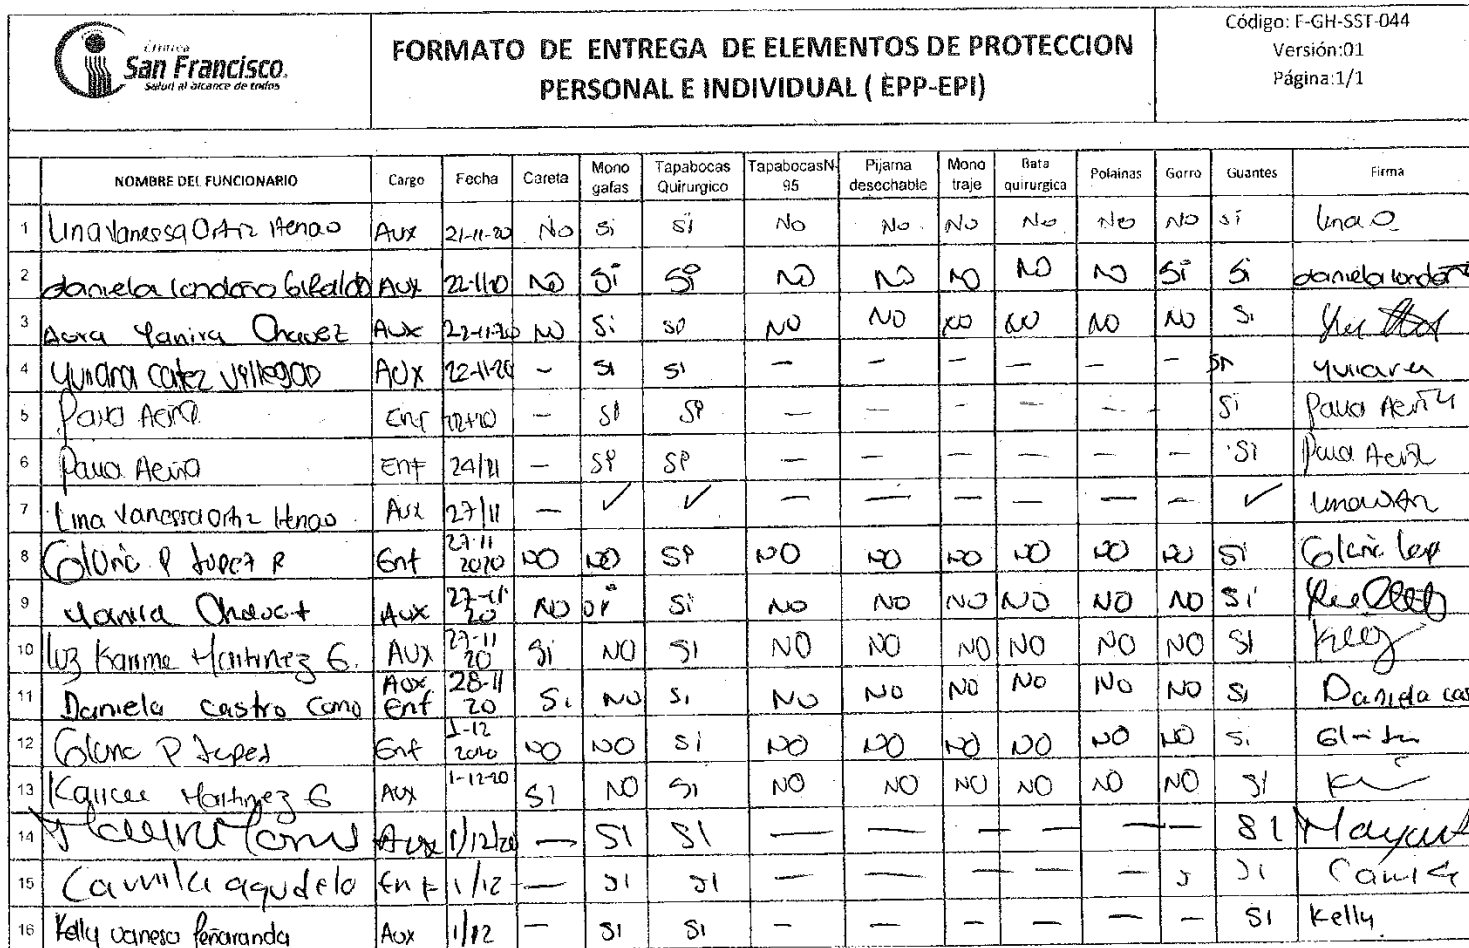 Clínica
San Francisco.
Salud al alcance de todos
FORMATO DE ENTREGA DE ELEMENTOS DE PROTECCION
PERSONAL E INDIVIDUAL ( EPP-EPI)
Código: F-GH-SST-044
Versión:01
Página:1/1
NOMBRE DEL FUNCIONARIO Cargo Fecha Careta Mono gafas Tapabocas Quirurgico TapabocasN-95 Pijama desechable Mono traje Bata quirurgica Polainas Gorro Guantes Firma
1 Lina Vanessa Ortiz Henao Aux 21-11-20 No Si Si No No No No No No si Lina O
2 daniela londoño Giraldo Aux 22-11-20 NO Si Si NO NO NO NO NO Si Si daniela londoñ
3 Aura Yanira Chavez Aux 22-11-20 NO Si SI NO NO NO NO NO NO Si
4 Aux 22-11-20 - SI SI — — — — — — SI
5 Enf — SI SI — — — — — — Si
6 Enf 24/11 — SI SI — — — — — — SI
7 Lina Vanessa Ortiz Henao Aux 27/11 — ✓ ✓ — — — — — — ✓
8 P Lopez R Enf 27-11 2020 NO NO SI NO NO NO NO NO NO SI
9 Yanira Chavez Aux 27-11 20 NO Si NO NO NO NO NO NO Si
10 Luz Karime Martinez G. AUX 27-11 20 Si NO SI NO NO NO NO NO NO SI
11 Daniela castro Cano Aux Enf 28-11 20 Si NO Si No No No No No NO Si Daniela cas
12 P Lopez Enf 1-12 2020 NO NO Si NO NO NO NO NO NO Si
13 Martinez G Aux 1-12-20 SI NO SI NO NO NO NO NO NO SI
14 Aux 1/12/20 — SI SI — — — — — — SI
15 Camila agudelo Enf 1/12 — SI SI — — — — — SI
16 Kelly vanesa Peñaranda Aux 1/12 — SI SI — — — — — — SI Kelly